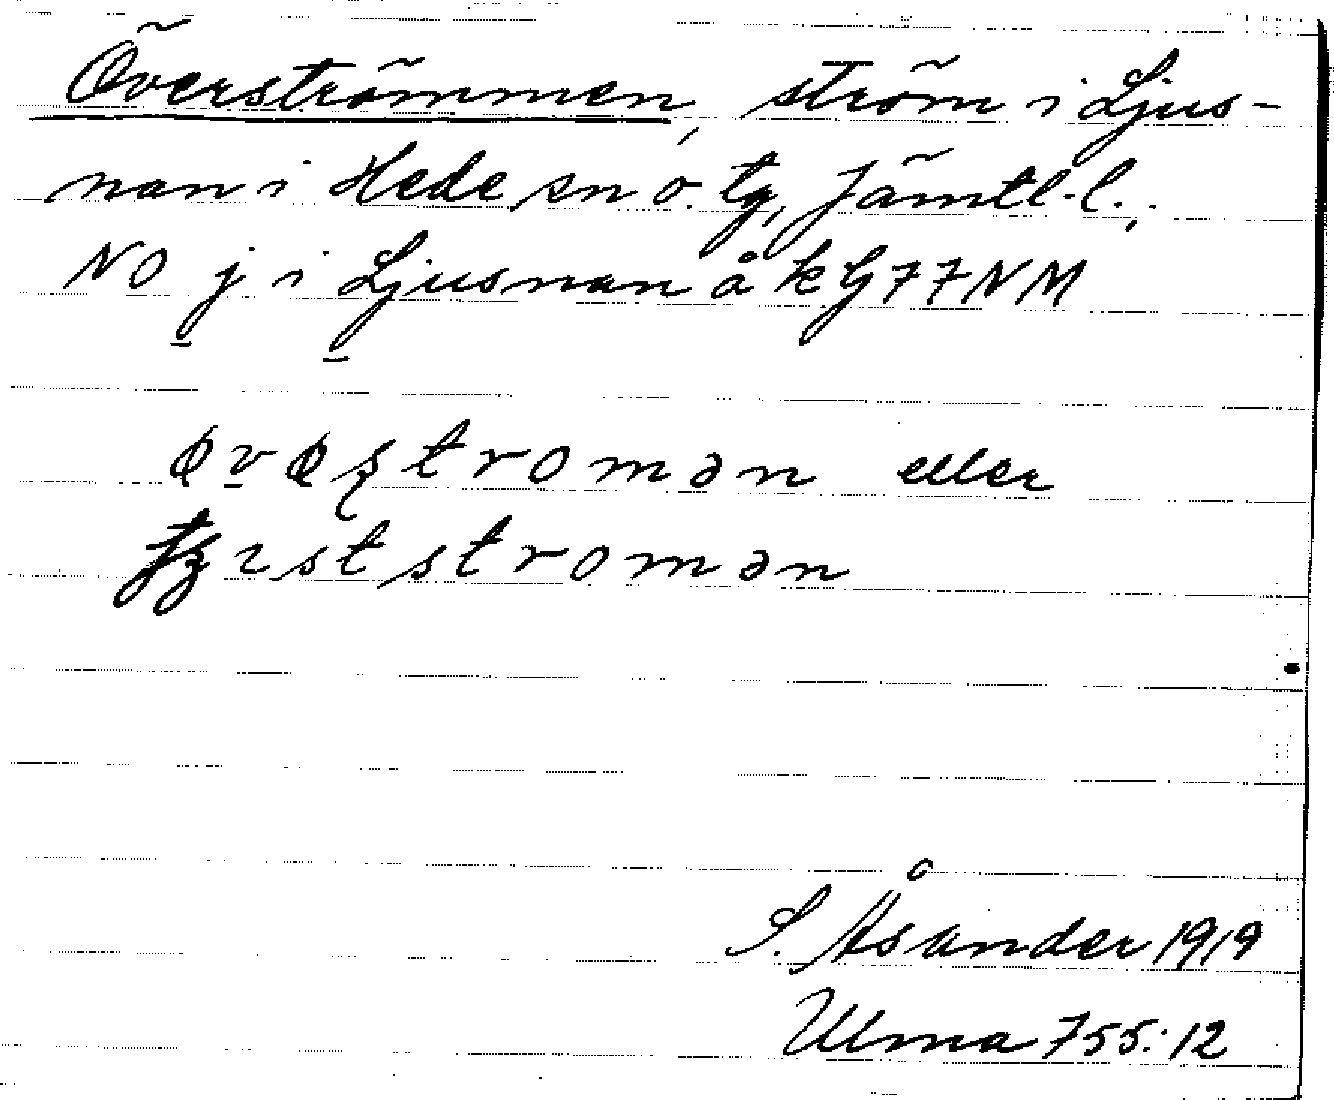 Överströmmen, ström i Ljus-
nan i Hede sn o. tg, Jämtl. l.,
NO j i Ljusnan å kG77NM
øvøʂtromən eller
ststromən
S. Åsander 1919
Ulma 755:12